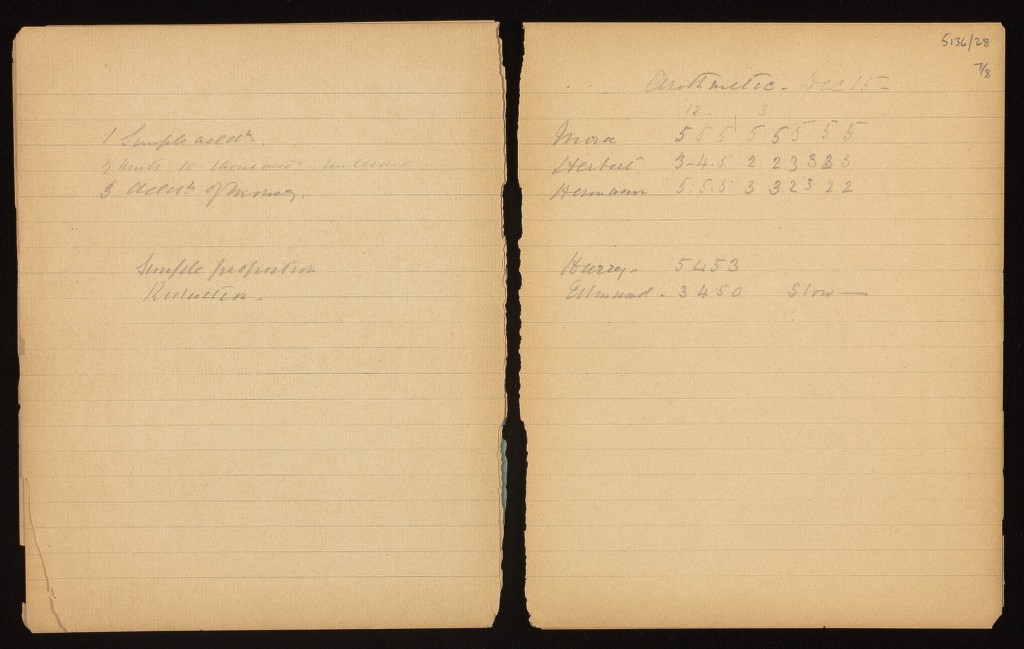 1 Simple addtn.
2 units to thousand
3 Addtn of Money.
Simple proportion
Reduction.
S136/28
7/8
Arithmetic - Dec 15 -
12. 3
Mora 5 5 5 5 5 5 5 5
Herbert 3-4.5 2 2 3 3 3 3
Hermann 5.5.5 3 3 2 3 2 2
Harry - 5 4 5 3
Edmund - 3 4 5 0 Slow —